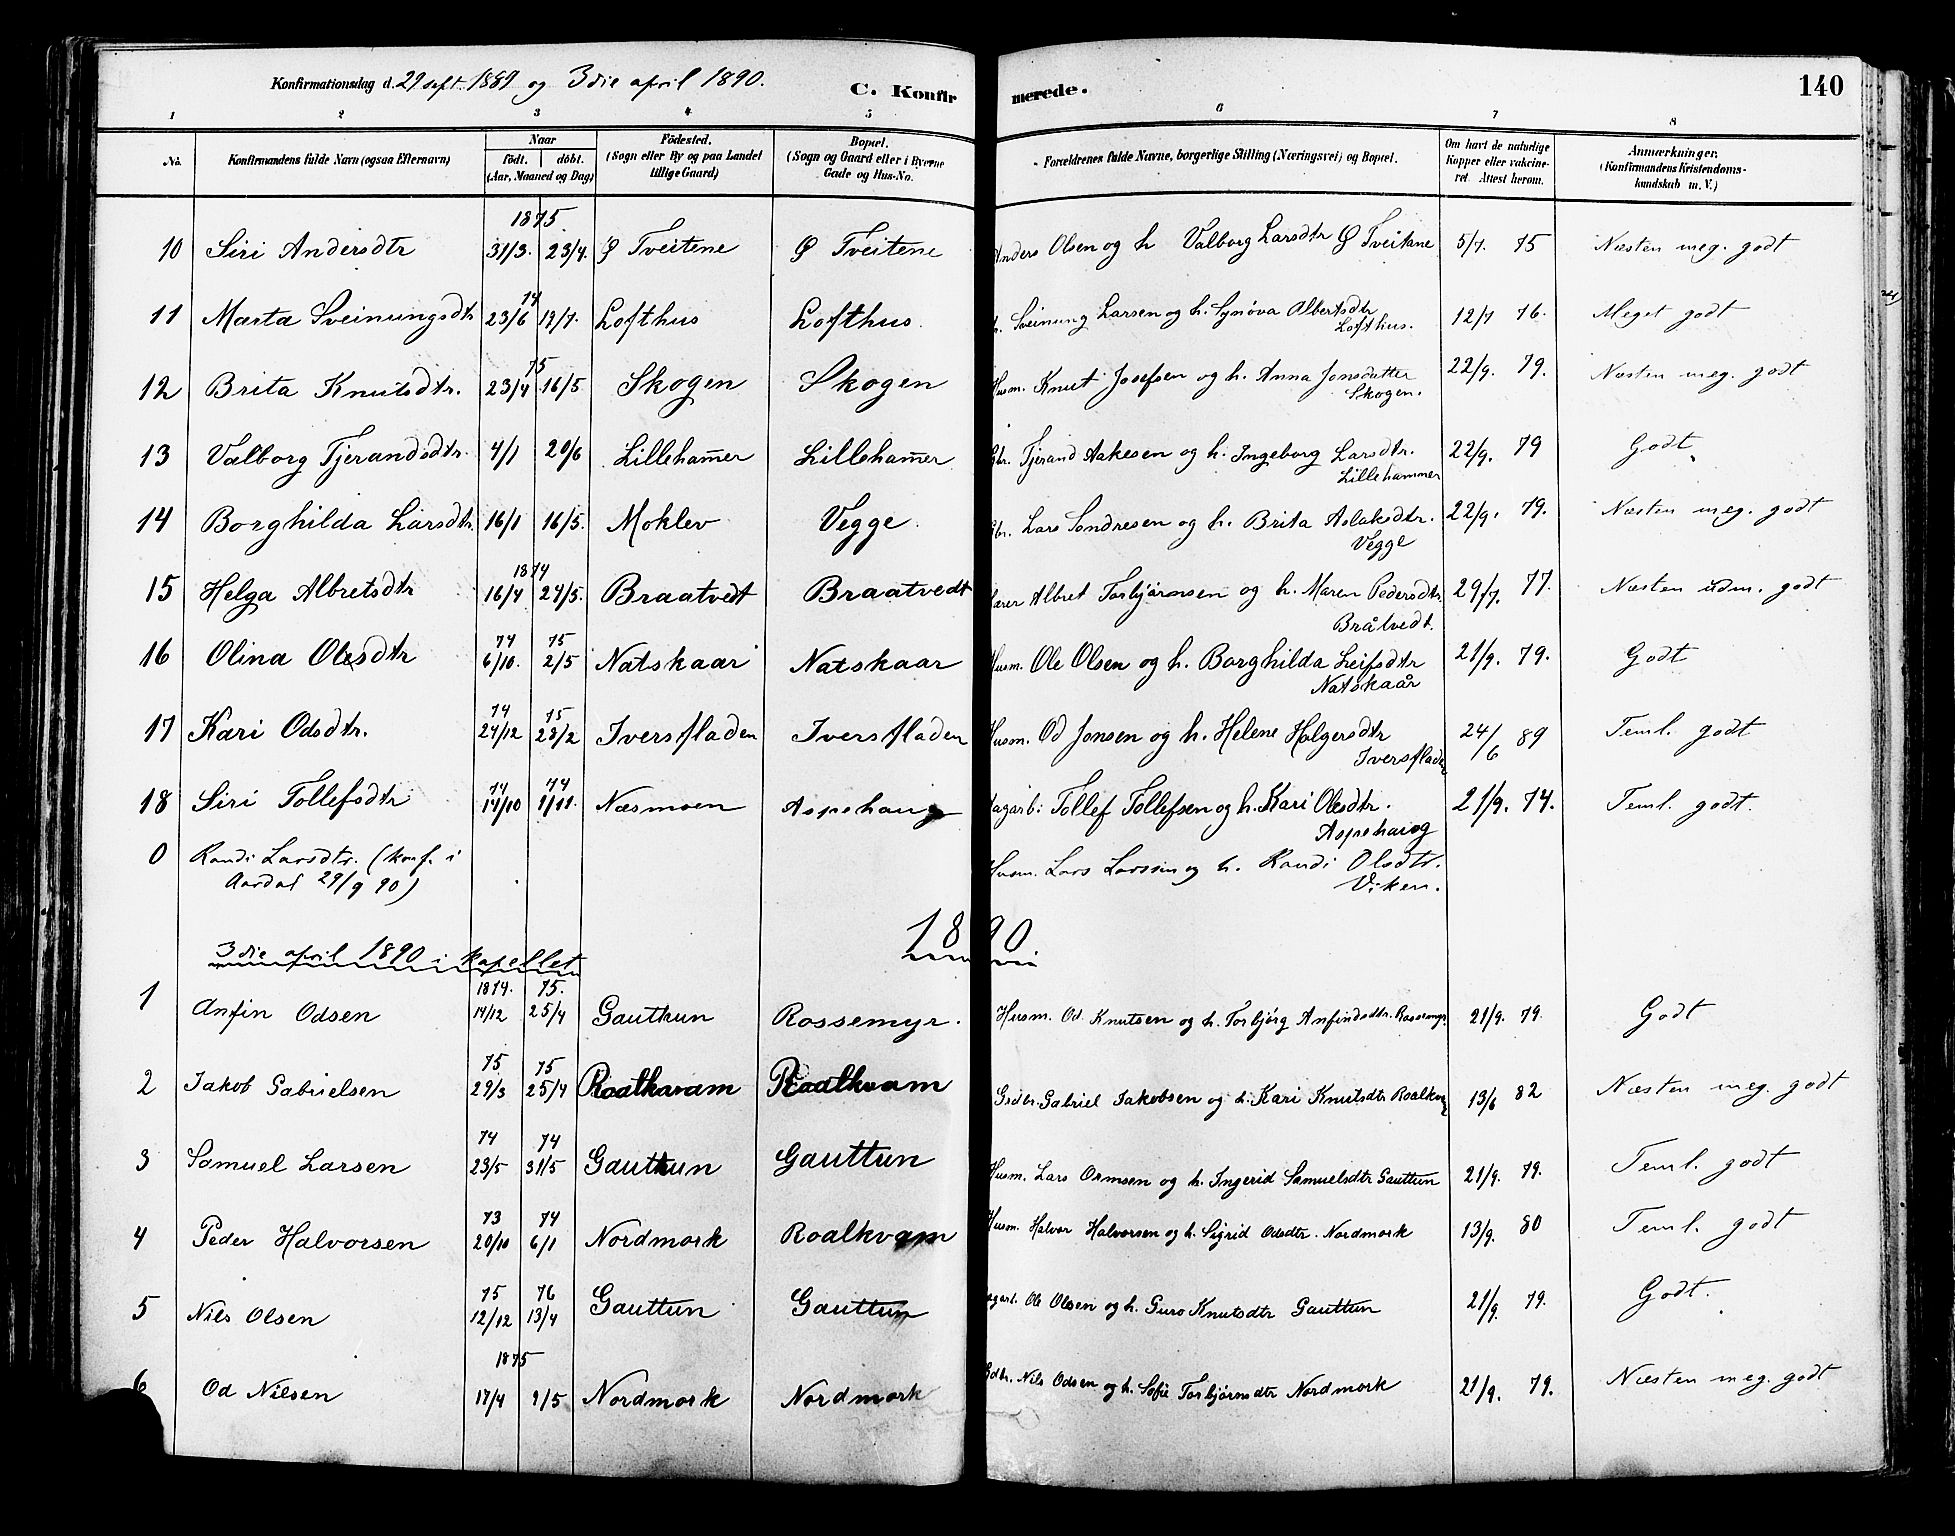 Konfirmationsdag d. 29 sept. 1889 og 3die april 1890. C. Konfirmerede. 140
1 2 3 4 5 6 7 8
No. Konfirmandens fulde Navn (ogsaa Efternavn) Naar födt. döbt. (Aar, Maaned og Dag) Födested. (Sogn eller By og paa Landet tillige Gaard) Bopæl. (Sogn og Gaard eller i Byerne Gade og Hus-No. Forældrenes fulde Navne, borgerlige Stilling (Næringsvei) og Bopæl. Om havt de naturlige Kopper eller vakcineret Attest herom. Anmærkninger. (Konfirmandens Kristendomskundskab m. V.)
1875.
10 Siri Andersdtr 31/3. 23/4. Ø Tveitene Ø Tveitene Anders Olsen og h Valborg Larsdtr Ø Tveitene 5/7. 75 Næsten meg. godt
74
11 Marta Sveinungsdtr 23/6 19/7. Lofthus Lofthus. Sveinung Larsen og h. Synøva Olbertsdtr Lofthus. 12/7 76. Meget godt
75
12 Brita Knutsdtr. 23/4 16/5 Skogen Skogen Husm. Knut Josefsen og h. Anna Jonsdatter Skogen. 22/9. 79. Næsten meg. godt
13 Valborg Tjerandsdtr. 4/1 20/6 Lilleham̅er Lilleham̅er Gbr. Tjerand Aakesen og h. Ingeborg Larsdtr. Lillehammer 22/9. 79 Godt
14 Borghilda Larsdtr. 16/1 16/5. Moklev Vegge. Gbr. Lars Sondresen og h. Brita Aslaksdtr. Vegge 22/9. 79. Næsten meg. godt
1874
15 Helga Albretsdtr 16/4 24/5. Braatvedt Braatvedt Lærer Albret Torbjørnsen og h. Maren Pedersdtr. Bråtvedt. 29/7. 77. Næsten udm. godt
74 75
16 Olina Olesdtr 6/10. 2/5 Natskaar Natskaar Husm. Ole Olsen og h. Borghilda Leifsdtr Natskaår 21/9. 79. Godt
74 75
17 Kari Odsdtr. 24/12 28/2 Iversfladen Iversfladen Husm. Od Jonsen og h. Helene Holgersdtr Iversfladen 24/6 89 Teml. godt
74 74
18 Siri Tollefsdtr 14/10 1/11. Næsmoen Aspehaug Dagarb: Tollef Tollefsen og h. Kari Olesdtr. Aspehaug 21/9. 74. Teml. godt.
0 Randi Larsdtr. (konf. i Aardal 29/9 90) Husm. Lars Larssen og h. Randi Olsdtr. Viken.
1890.
3die april 1890 i kapellet
1874. 75.
1 Anfin Odsen 14/12 25/4 Gautkun Rossemyr. Husm. Od. Knutsen og h. Torbjørg Anfindsdtr. Rossemyr. 21/9. 79. Godt
75 75
2 Jakob Gabrielsen 29/3 25/4 Roalkvam Roalkvam Gbdr. Gabriel Jakobsen og h. Kari Knutsdtr Roalkvam 13/6 82 Næsten meg. godt
74 74
3 Samuel Larsen 23/5 31/5 Gauttun Gauttun Husm. Lars Ormsen og h. Ingerid Samuelsdtr Gauttun 21/9. 79. Teml. godt
73 74
4 Peder Halvorsen 20/10 6/1 Nordmork Roalkvam Husm. Halvor Halvorsen og h. Sigrid Odsdtr. Nordmork 13/9. 80 Teml. godt
75 76
5 Nils Olsen 12/12 13/4 Gauttun Gauttun Dagarb. Ole Olsen og h. Guro Knutsdtr Gauttun 21/9. 79. Godt.
1875
6 Od Nilsen 17/4 9/5 Nordmork Nordmork Gbdr. Nils Odsen og h. Sofie Torbjørnsdtr Nordmork 21/9. 79. Næsten meg. godt